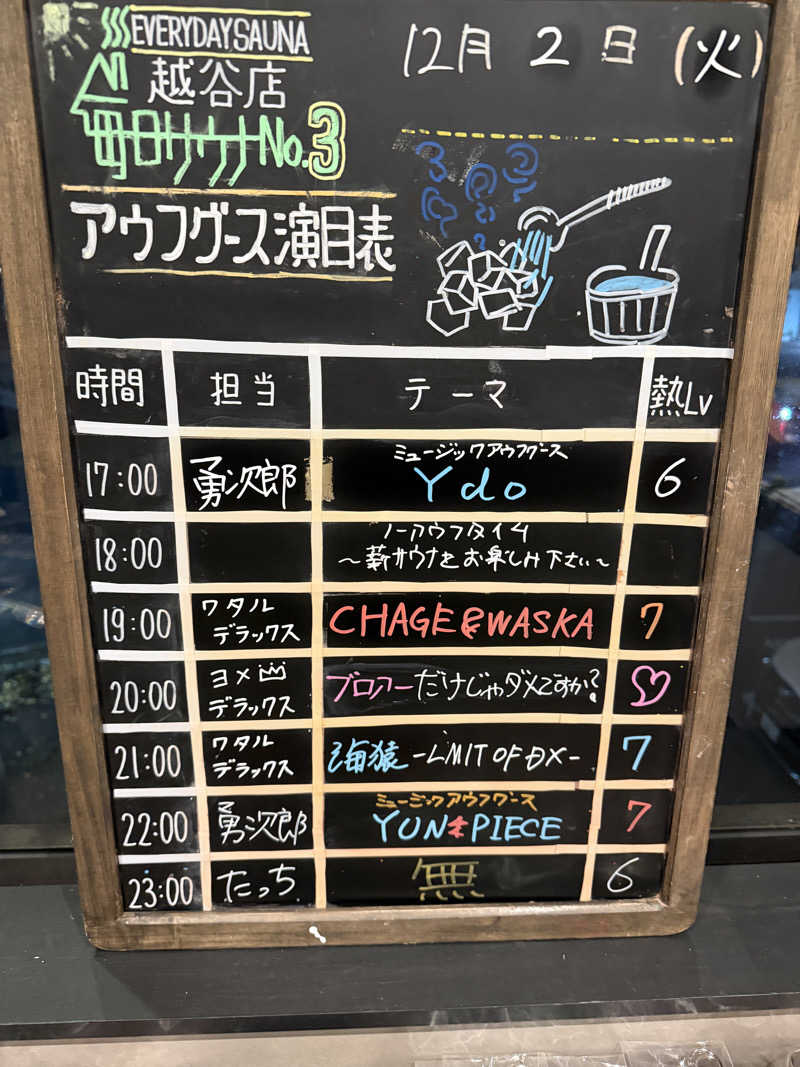 EVERYDAY SAUNA
越谷店
毎日サウナNo.3
アウフグース演目表
12月 2日 (火)
時間 担当 テーマ 熱Lv
17:00 勇次郎 ミュージックアウフグース Ydo 6
18:00 ノーアウフタイム
〜薪サウナをお楽しみ下さい〜
19:00 ワタルデラックス CHAGE&WASKA 7
20:00 ヨメデラックス ブロワーだけじゃダメですか? ♡
21:00 ワタルデラックス 海猿 -LIMIT OF DX- 7
22:00 勇次郎 ミュージックアウフグース YUN PIECE 7
23:00 たっち 無 6